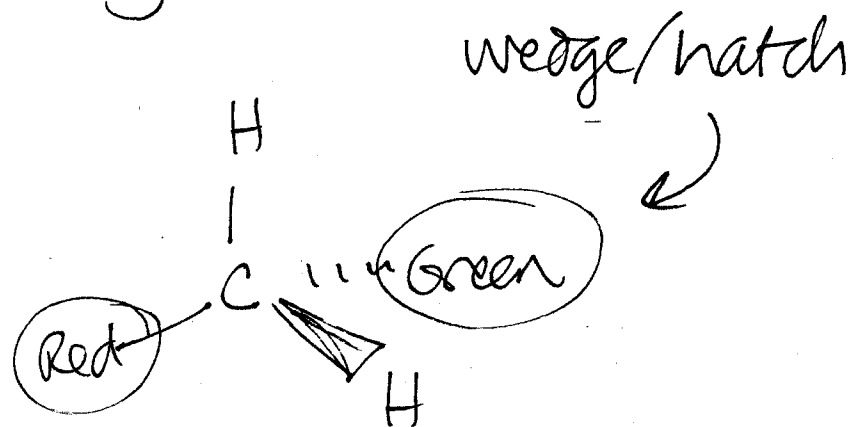 wedge/hatch
H
C Green
Red
H